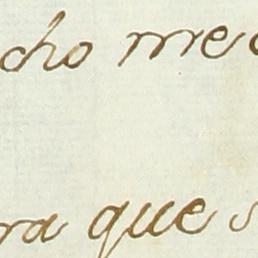 cho me
ra que s